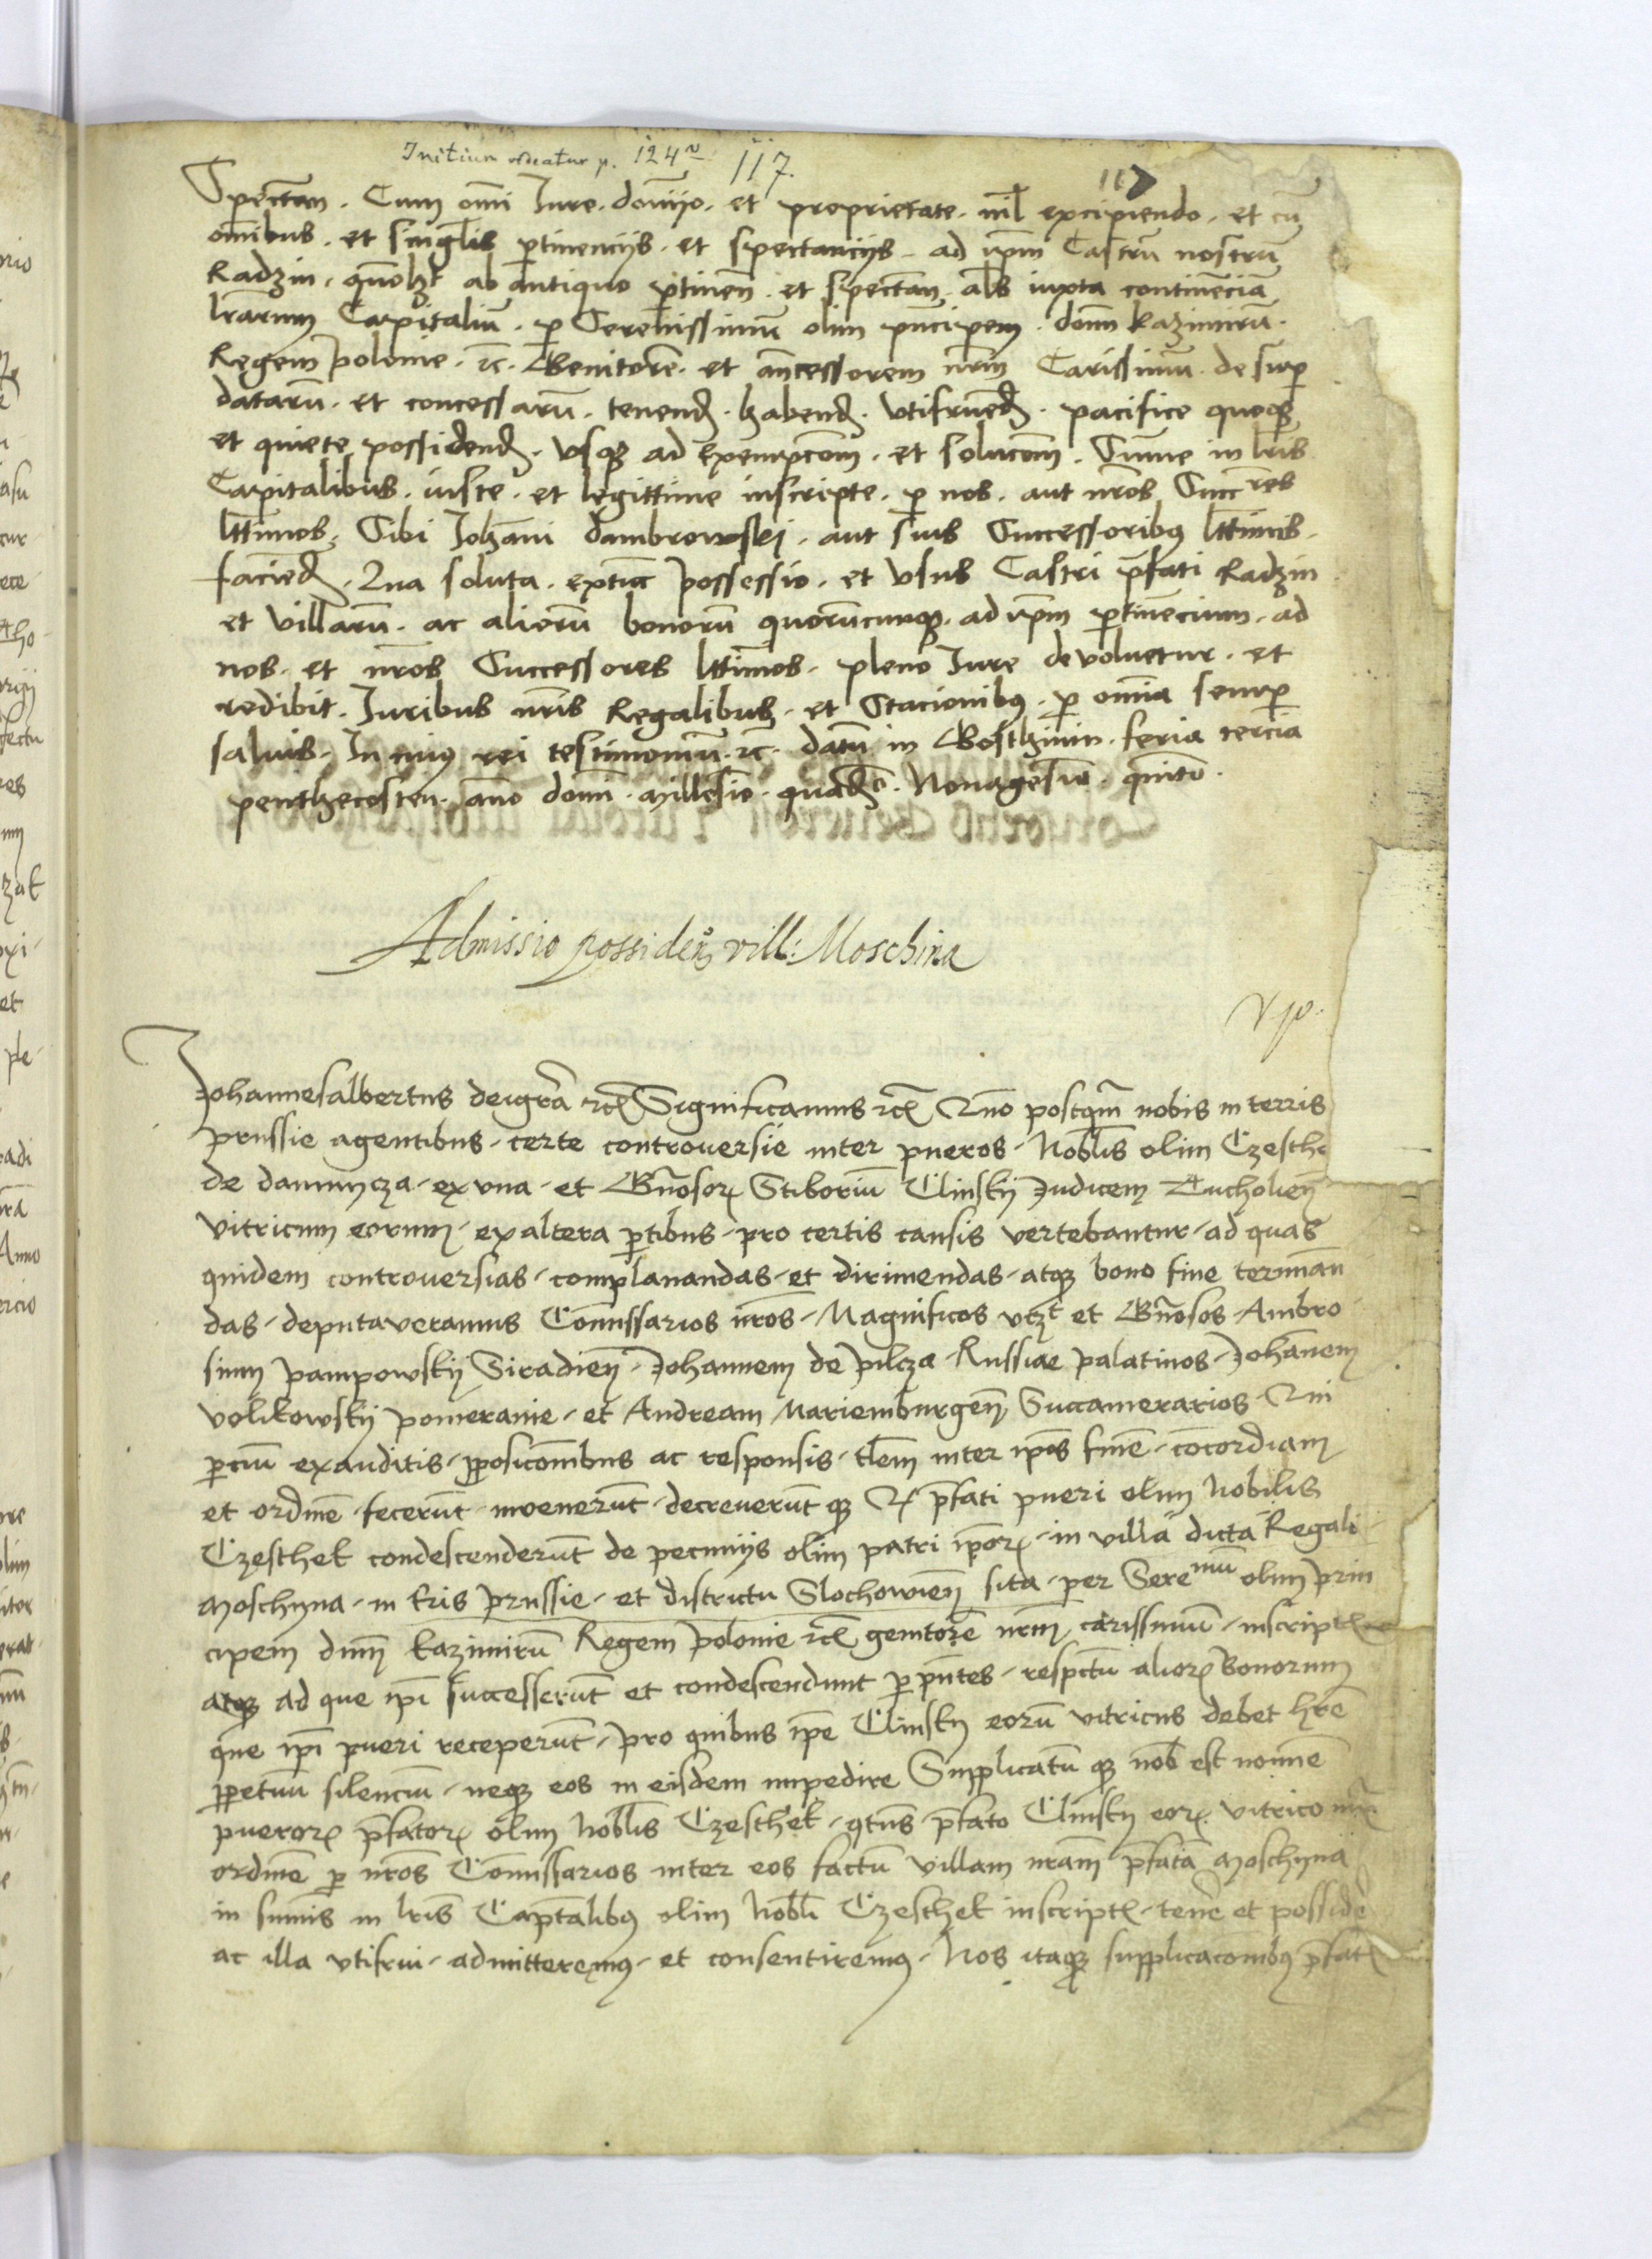 Initium videatur p. 124 v
117.
117
Spectan. Cum omi Jure. domiio. et proprietate. nil excipiendo. et cu
omibus. et singlis ptinencijs. et spectancijs. ad ipm Castru nostru
Radzin. quolzt ab antiquo ptinen. et spectan. als iuxta continencia
lrarum Capitaliu. p Serenissimu olim pncipem. domn Kazimiru.
Regem polonie. rc. Genitore. et antcessorem nrm Carissimu. desup
dataru. et concessaru. tenend. habend. vtifruend. pacifice quoqz
et quiete possidend. vsqz ad exempcom. et solucom. Summe in lris
Capitalibus. iuste. et legittime inscripte. p nos. aut nros Succres
lttimos. Sibi Johani dambrowskj. aut suis Successoribus lttimis.
faciend. Qua soluta. extuc possessio. et vsus Castri pfati Radzin
et villaru. ac alioru bonoru quorucunqz. ad ipm ptinecium. ad
nos. et nros Successores lttimos. pleno Jure devoluetur. et
redibit. Juribus nris Regalibus. et Stacionibus. p omia semp
saluis. In cuius rei testimoniu. rc. datu in Gosthinin. feria tercia
penthecosten. ano domi. millesio. quado. Nonagesio. quito.
Admissio possiden vill: Moschina
Johannesalbertus deigra rc Significamus rc Quo postqm nobis in terris
prussie agentibus. certe controuersie inter pueros. Noblis olim Czesthe
de damnycza. ex vna. et Gnosor Stiboriu Clinskij Judicem Tucholien
vitricum eorum. ex altera ptibus. pro certis causis vertebantur. ad quas
quidem controuersias. complanandas. et dirimendas. atqz bono fine terminan
das. deputaveramus Comissarios nros. Magnificos vtzt et Gnosos. Ambro
sium pampowskij Siradien. Johannem de pilcza Russiae palatinos. Johanem
volikowskij pomeranie. et Andream Mariemburgen Succamerarios. Qui
pciu exauditis. pposicombus ac responsis. tlem inter ipos fine. concordiam
et ordine. fecerut. inuenerut. decreuerutqz Qz pfati pueri olim Nobilis
Czesthek condescenderut de pecuniis olim patri ipor. in villa dicta Regali
Moschyna. in tris prussie. et districtu Slochowien sita. per Serenmu olim prin
cipem dnm Kazimiru Regem polonie rc genitore nrm carissimu. inscript
atqz ad que ipi successerut et condescendunt p pntes. respctu alior bonorum
que ipi pueri receperut. pro quibus ipe Clinskij eoru vitricus debet hre
ppetuu silenciu. neqz eos in eisdem impedire Supplicatuqz nob est noime
pueror pfator olim Noblis Czesthek. qtus pfato Clinskij eor vitrico
ordine p nros Comissarios inter eos factu villam nram pfata Moschyna
in sumis in lris Captalibus olim Nobli Czesthek inscript. tene et posside
ac illa vtifrui. admitteremus. et consentiremus. Nos itaqz supplicacombus pfat